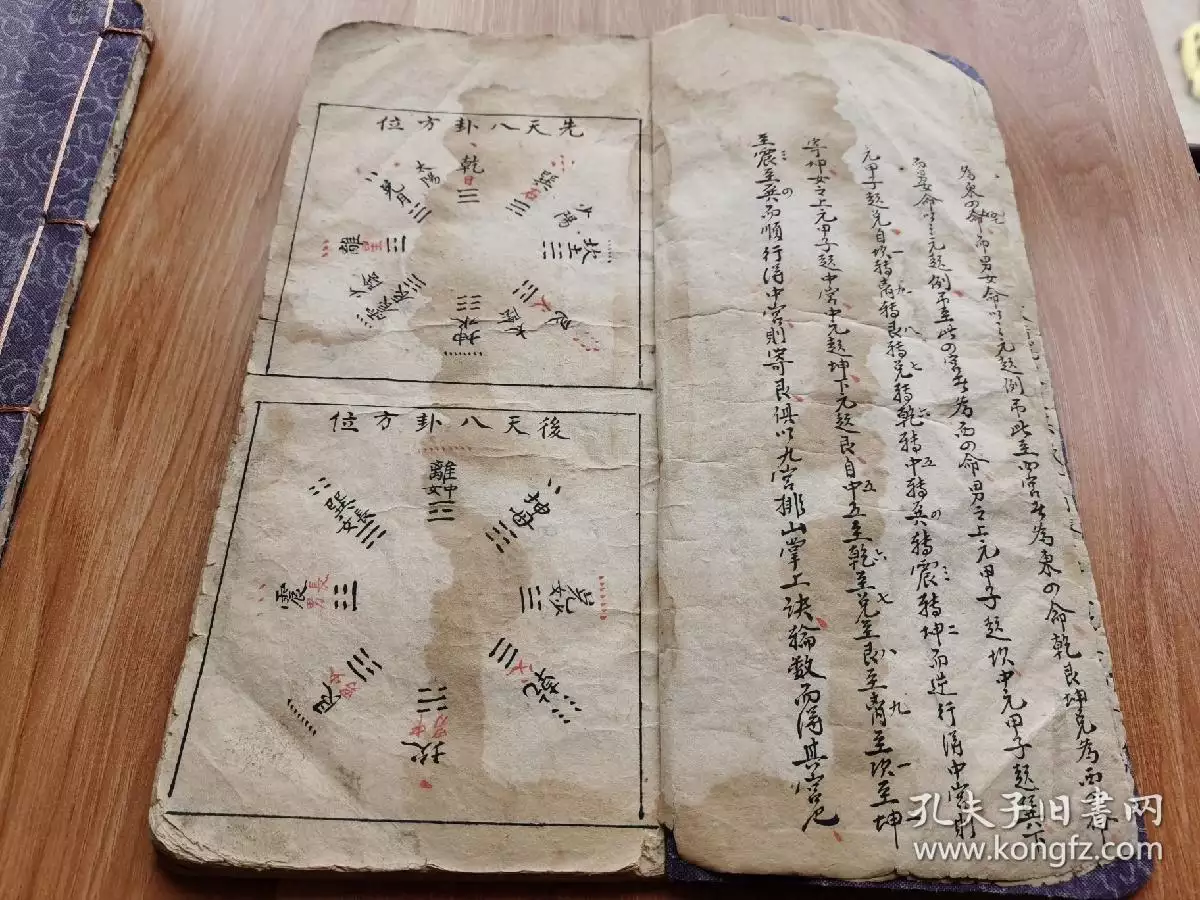 為東四命而男女命以三元起例吊此至四宮者為東四命乾艮坤兌為西四命
而男女命以三元起例吊至此四宮者為西四命男之上元甲子起坎中元甲子起巽下
元甲子起兌自坎轉离轉艮轉兌轉乾轉中轉巽轉震轉坤而逆行得中宮則
一九八七六五四三二
寄坤女之上元甲子起中宮中元起坤下元起艮自中五至乾至兌至艮至离至坎至坤
五六七八九一
至震至巽而順行得中宮則寄艮俱以九宮排山掌上訣輪數而得其宮也
三四
先天八卦方位
乾
日
兌
月
太陽
離
星
震
少陰
坤
艮
太陰
坎
土
少陽
後天八卦方位
離
中女
坤
兌
乾
坎
中男
艮
震
長男
巽
長女
孔夫子旧書网
www.kongfz.com